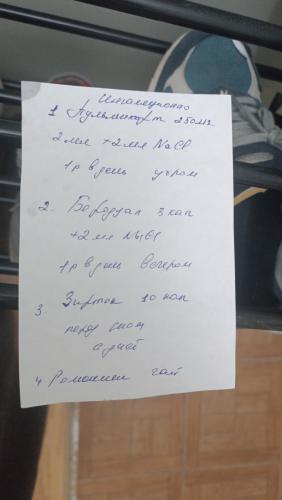 Ингаляционно
1 Пульмикорт 250мг
2мл +2мл NaCl
1р в день утром
2. Беродуал 5 кап
+2мл NaCl
1р в день вечером
3. Зиртек 10 кап
перед сном
5 дней
4. Ромашки чай